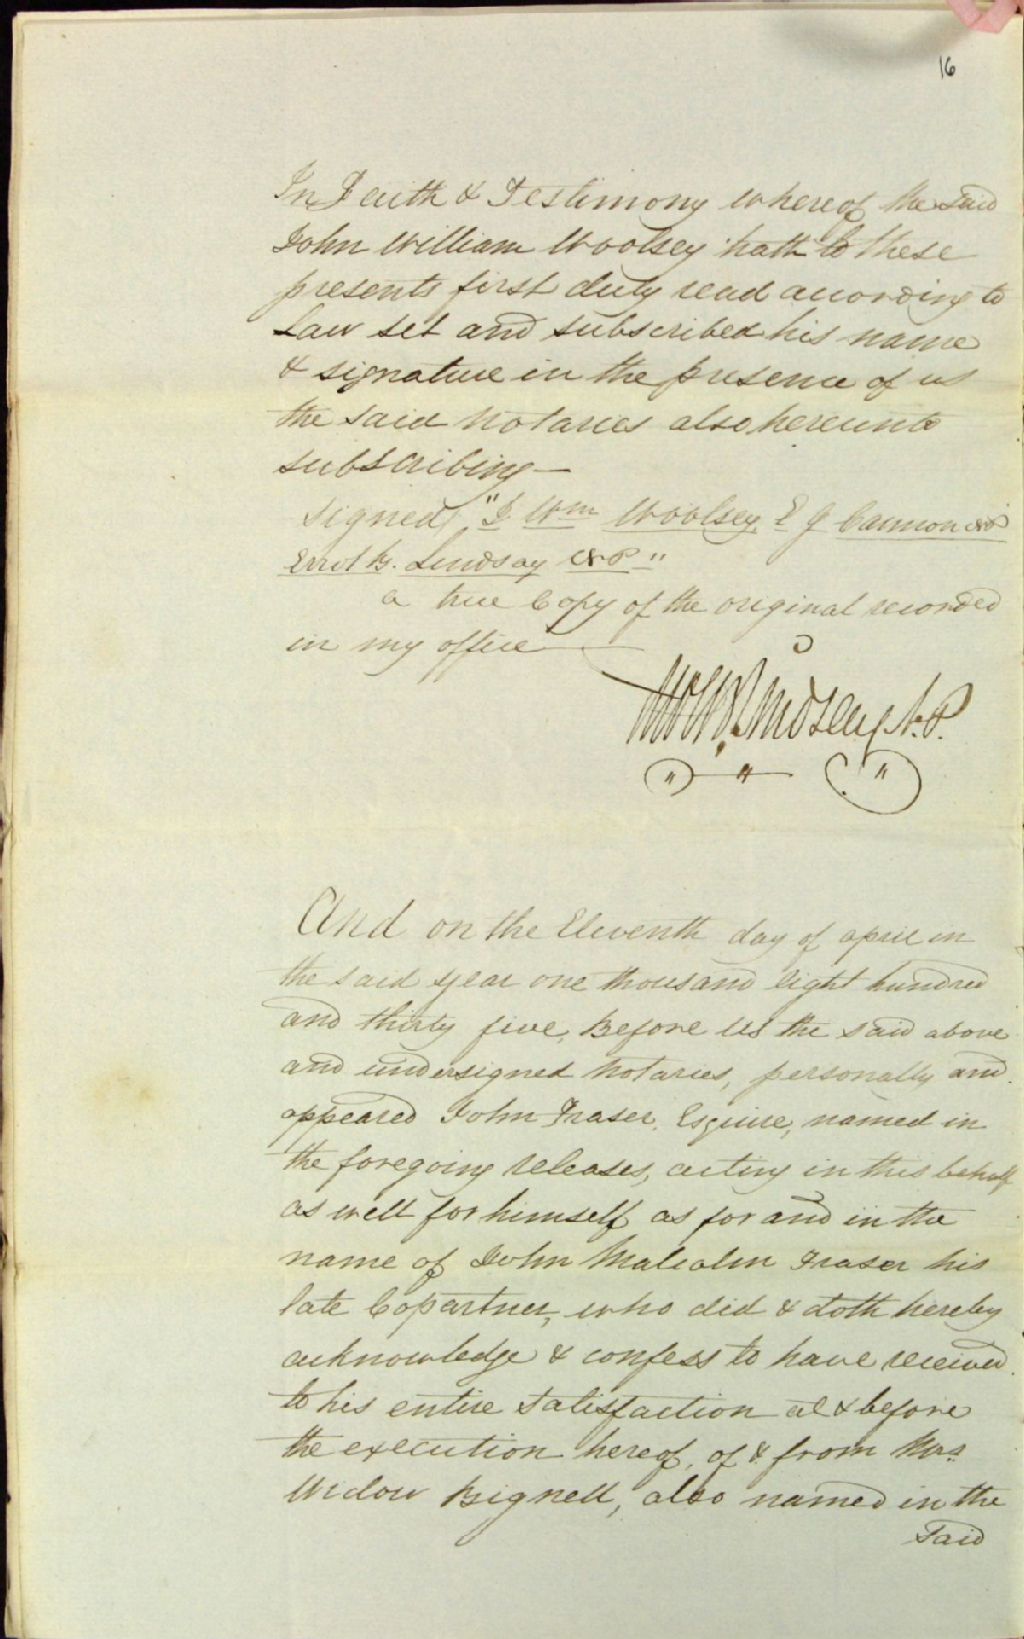 16
In Faith & Testimony whereof the said
John William Woolsey hath to these
presents first duly read according to
Law set and subscribed his name
& signature in the presence of us
the said Notaries also hereunto
subscribing —
Signed, "J Wm Woolsey, E G Cannon N.P
Errol B. Lindsay N.P "
a true Copy of the original recorded
in my office
Lindsay N.P.
And on the Eleventh day of april in
the said year one thousand eight hundred
and thirty five, Before Us the said above
and undersigned Notaries, personally and
appeared John Fraser, Esquire, named in
the foregoing releases, acting in this behalf
as well for himself as for and in the
name of John Malcolm Fraser his
late Copartner, who did & doth hereby
acknowledge & confess to have received
to his entire satisfaction at & before
the execution hereof, of & from Mrs.
Widow Bignell, also named in the
Said